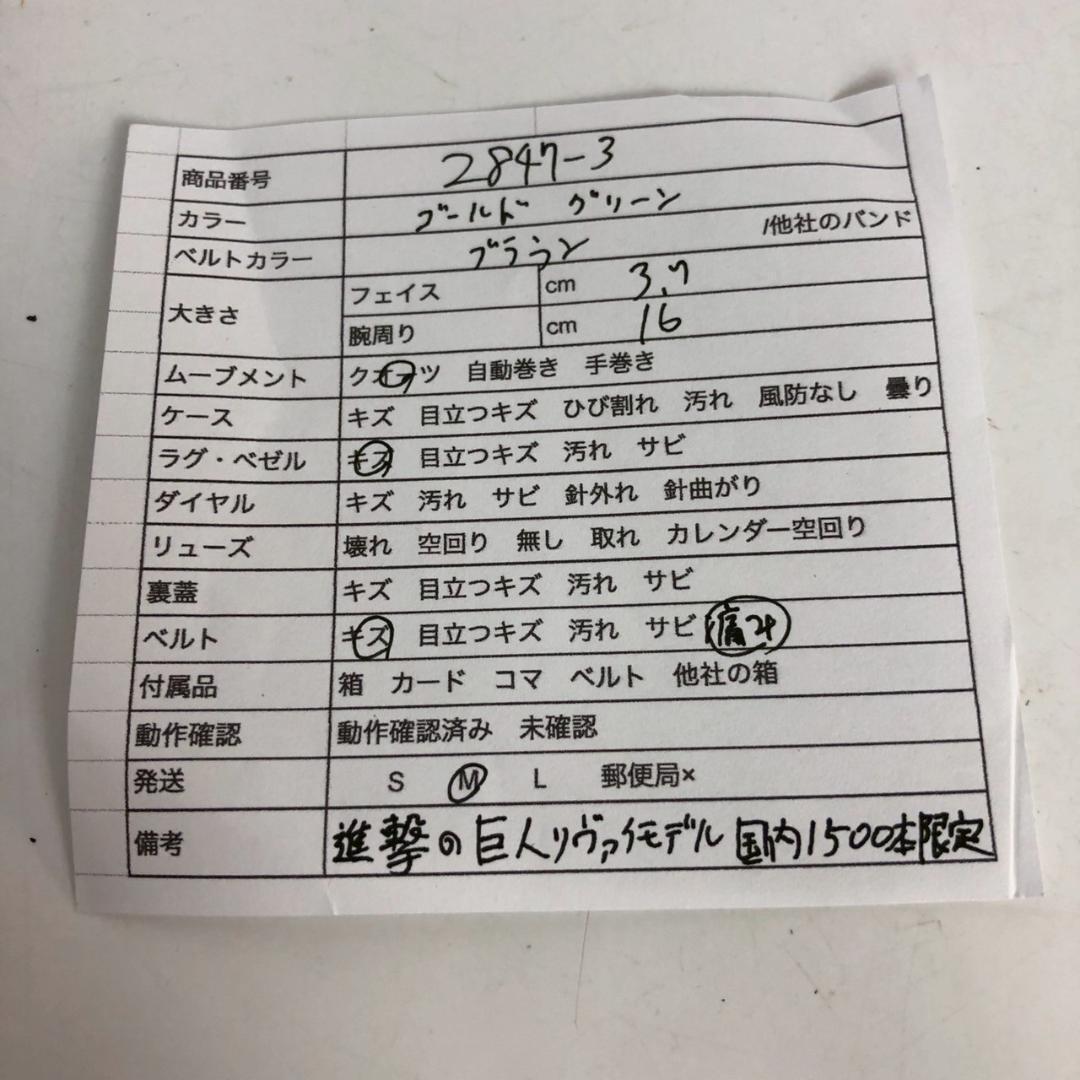 商品番号 2847-3
カラー ゴールド グリーン
ベルトカラー ブラウン /他社のバンド
大きさ フェイス cm 3.7
腕周り cm 16
ムーブメント クオーツ 自動巻き 手巻き
ケース キズ 目立つキズ ひび割れ 汚れ 風防なし 曇り
ラグ・ベゼル キズ 目立つキズ 汚れ サビ
ダイヤル キズ 汚れ サビ 針外れ 針曲がり
リューズ 壊れ 空回り 無し 取れ カレンダー空回り
裏蓋 キズ 目立つキズ 汚れ サビ
ベルト キズ 目立つキズ 汚れ サビ 痛み
付属品 箱 カード コマ ベルト 他社の箱
動作確認 動作確認済み 未確認
発送 S M L 郵便局×
備考 進撃の巨人リヴァイモデル 国内1500本限定